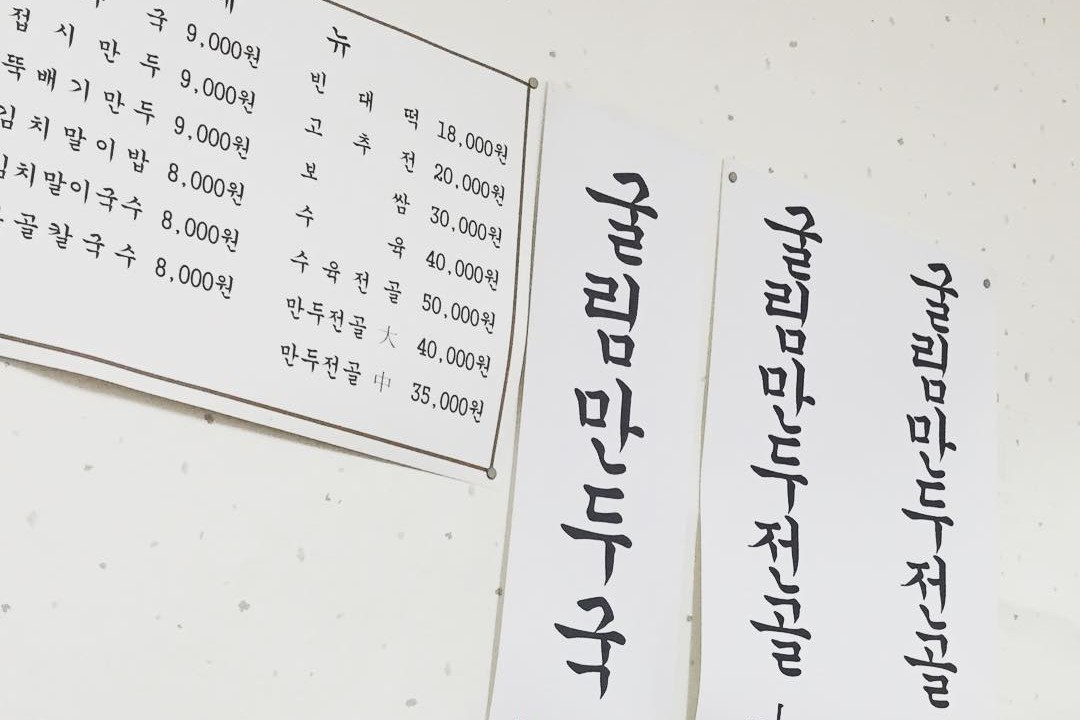 뉴
국 9,000원
접시만두 9,000원
뚝배기만두 9,000원
김치말이밥 8,000원
김치말이국수 8,000원
골칼국수 8,000원
빈대떡 18,000원
고추전 20,000원
보쌈 30,000원
수육 40,000원
수육전골 50,000원
만두전골 大 40,000원
만두전골 中 35,000원
굴림만두국
굴림만두전골
굴림만두전골